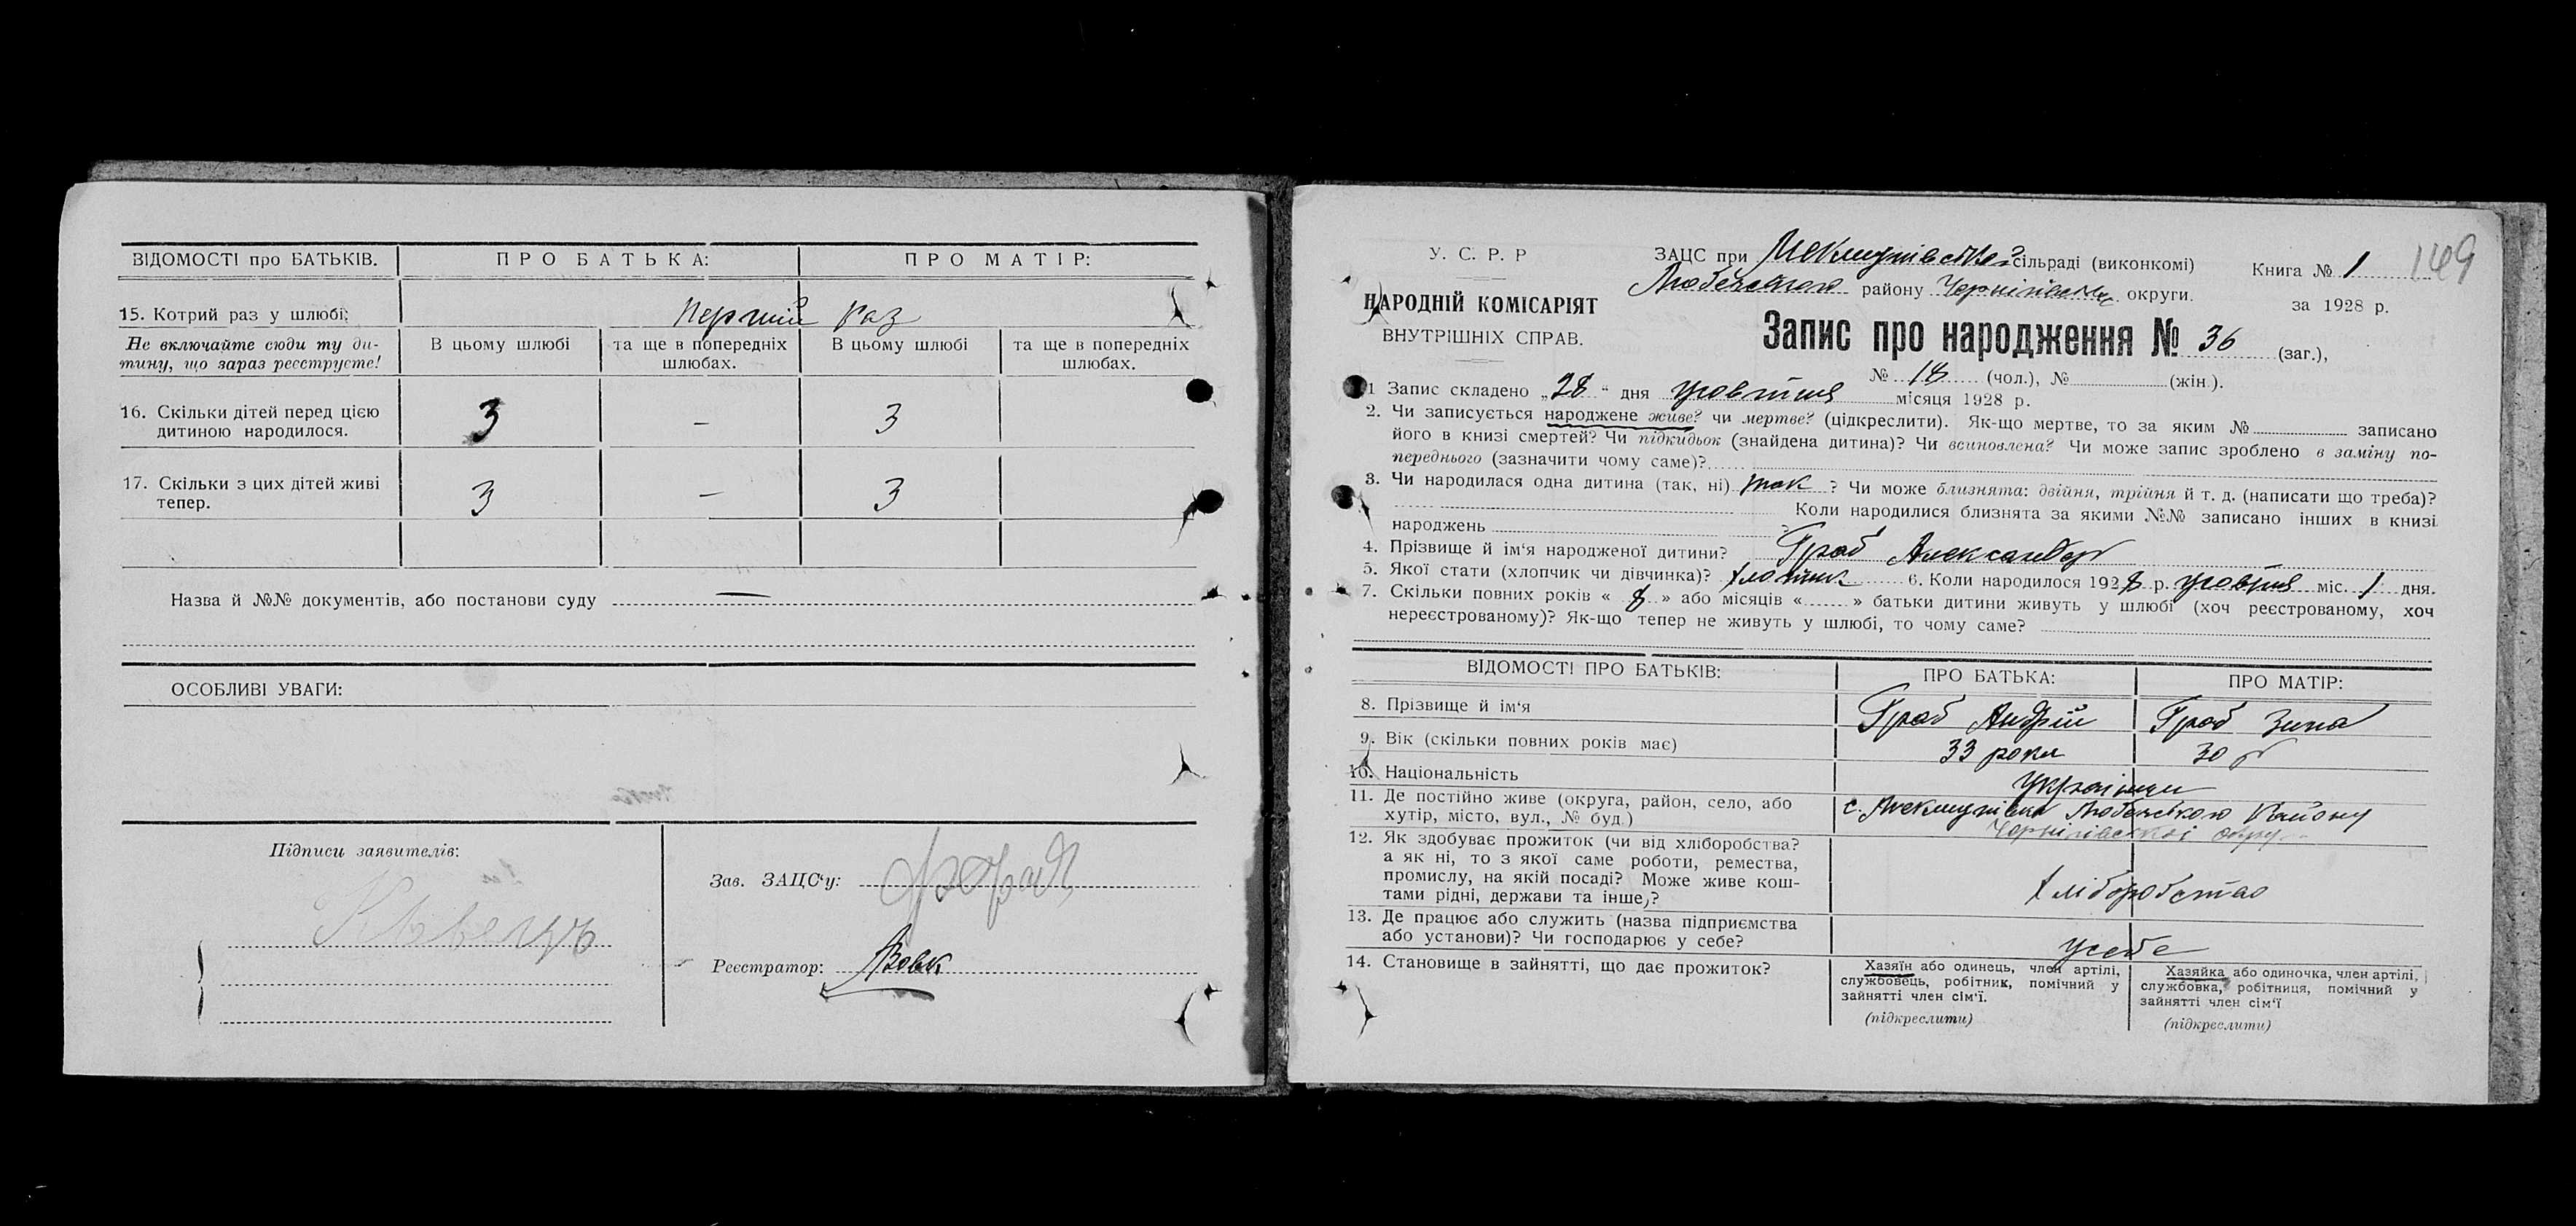 ВІДОМОСТІ про БАТЬКІВ. ПРО БАТЬКА: ПРО МАТІР:
15. Котрий раз у шлюбі: Перший раз
Не включайте сюди ту ди-
тину, що зараз реєструєте!
В цьому шлюбі та ще в попередніх шлюбах. В цьому шлюбі та ще в попередніх шлюбах.
16. Скільки дітей перед цією 3 — 3
дитиною народилося.
17. Скільки з цих дітей живі 3 — 3
тепер.
Назва й №№ документів, або постанови суду —
ОСОБЛИВІ УВАГИ:
Підписи заявителів:
Зав. ЗАЦС'у:
Реєстратор: Вовк
У. С. Р. Р
НАРОДНІЙ КОМІСАРІЯТ
ВНУТРІШНІХ СПРАВ.
ЗАЦС при сільраді (виконкомі)
району округи.
Книга № 1 149
за 1928 р.
Запис про народження № 36 (заг.),
№ 18 (чол.), № (жін.).
1 Запис складено „28" дня жовтня місяця 1928 р.
2. Чи записується народжене живе? чи мертве? (цідкреслити). Як-що мертве, то за яким № записано
його в книзі смертей? Чи підкидьок (знайдена дитина)? Чи всиновлена? Чи може запис зроблено в заміну по-
переднього (зазначити чому саме)?
3. Чи народилася одна дитина (так, ні) так ? Чи може близнята: двійня, трійня й т. д. (написати що треба)?
Коли народилися близнята за якими №№ записано інших в книзі
народжень
4. Прізвище й ім'я народженої дитини? Граб Александр
5. Якої стати (хлопчик чи дівчинка)? хлопчик 6. Коли народилося 1928 р. жовтня міс. 1 дня.
7. Скільки повних років « 8 » або місяців « » батьки дитини живуть у шлюбі (хоч реєстрованому, хоч
нереєстрованому)? Як-що тепер не живуть у шлюбі, то чому саме?
ВІДОМОСТІ ПРО БАТЬКІВ: ПРО БАТЬКА: ПРО МАТІР:
8. Прізвище й ім'я Граб Андрій Граб Зина
9. Вік (скільки повних років має) 33 роки 30 р
10. Національність Українци
11. Де постійно живе (округа, район, село, або
хутір, місто, вул., № буд.)
12. Як здобуває прожиток (чи від хліборобства?
а як ні, то з якої саме роботи, ремества,
промислу, на якій посаді? Може живе кош-
тами рідні, держави та інше,? хліборобство
13. Де працює або служить (назва підприємства
або установи)? Чи господарює у себе? у себе
14. Становище в зайнятті, що дає прожиток?
Хазяїн або одинець, член артілі,
службовець, робітник, помічний у
зайнятті член сім'ї.
(підкреслити)
Хазяйка або одиночка, член артілі,
службовка, робітниця, помічний у
зайнятті член сім'ї
(підкреслити)